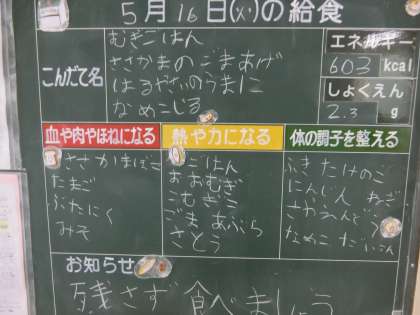 5月16日(火)の給食
こんだて名
むぎごはん
ささかまのごまあげ
はるやさいのうまに
なめこじる
エネルギー
603 kcal
しょくえん
2.3 g
血や肉やほねになる
ささかまぼこ
たまご
ぶたにく
みそ
熱や力になる
ごはん
おおむぎ
こむぎこ
ごま あぶら
さとう
体の調子を整える
ふき たけのこ
にんじん ねぎ
さやえんどう
なめこ だいこん
お知らせ
残さず食べましょう